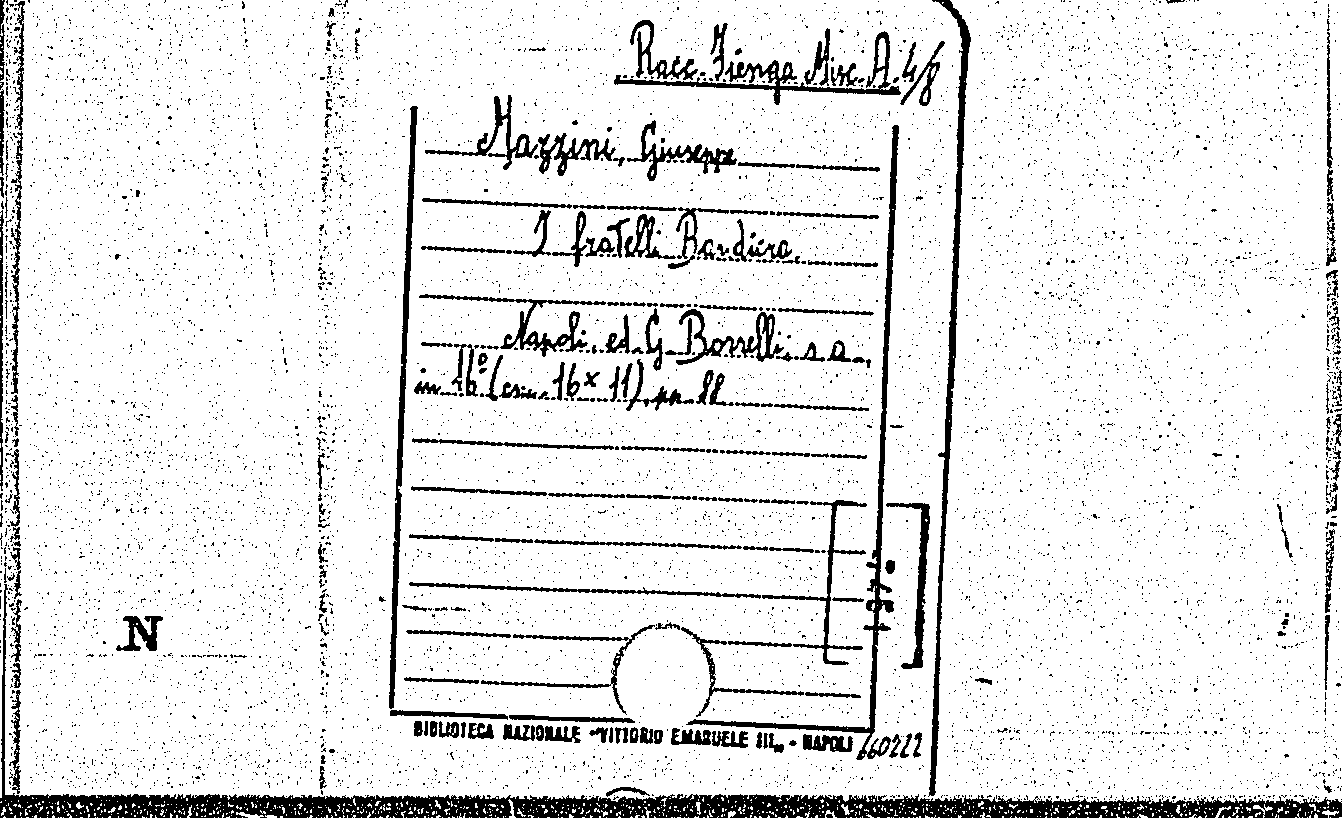 Racc. Fienga Misc. A. 4/8
Mazzini, Giuseppe
I fratelli Bandiera.
Napoli, ed. G. Borrelli, s.a.,
in 16° (cm. 16 x 11), pp. 88
N
BIBLIOTECA NAZIONALE "VITTORIO EMANUELE III" - NAPOLI 660222